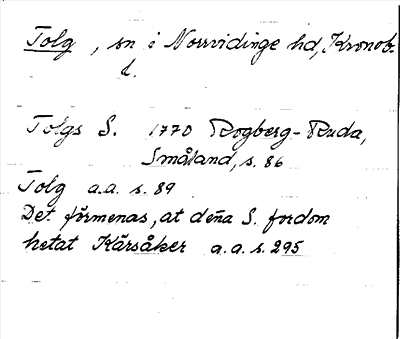 Tolg, sn i Norrvidinge hd, Kronob.
l.
Tolgs S. 1770 Rogberg-Ruda,
Småland, s. 86
Tolg a.a. s. 89
Det förmenas, at deña S. fordom
hetat Kärsåker a.a. s. 295